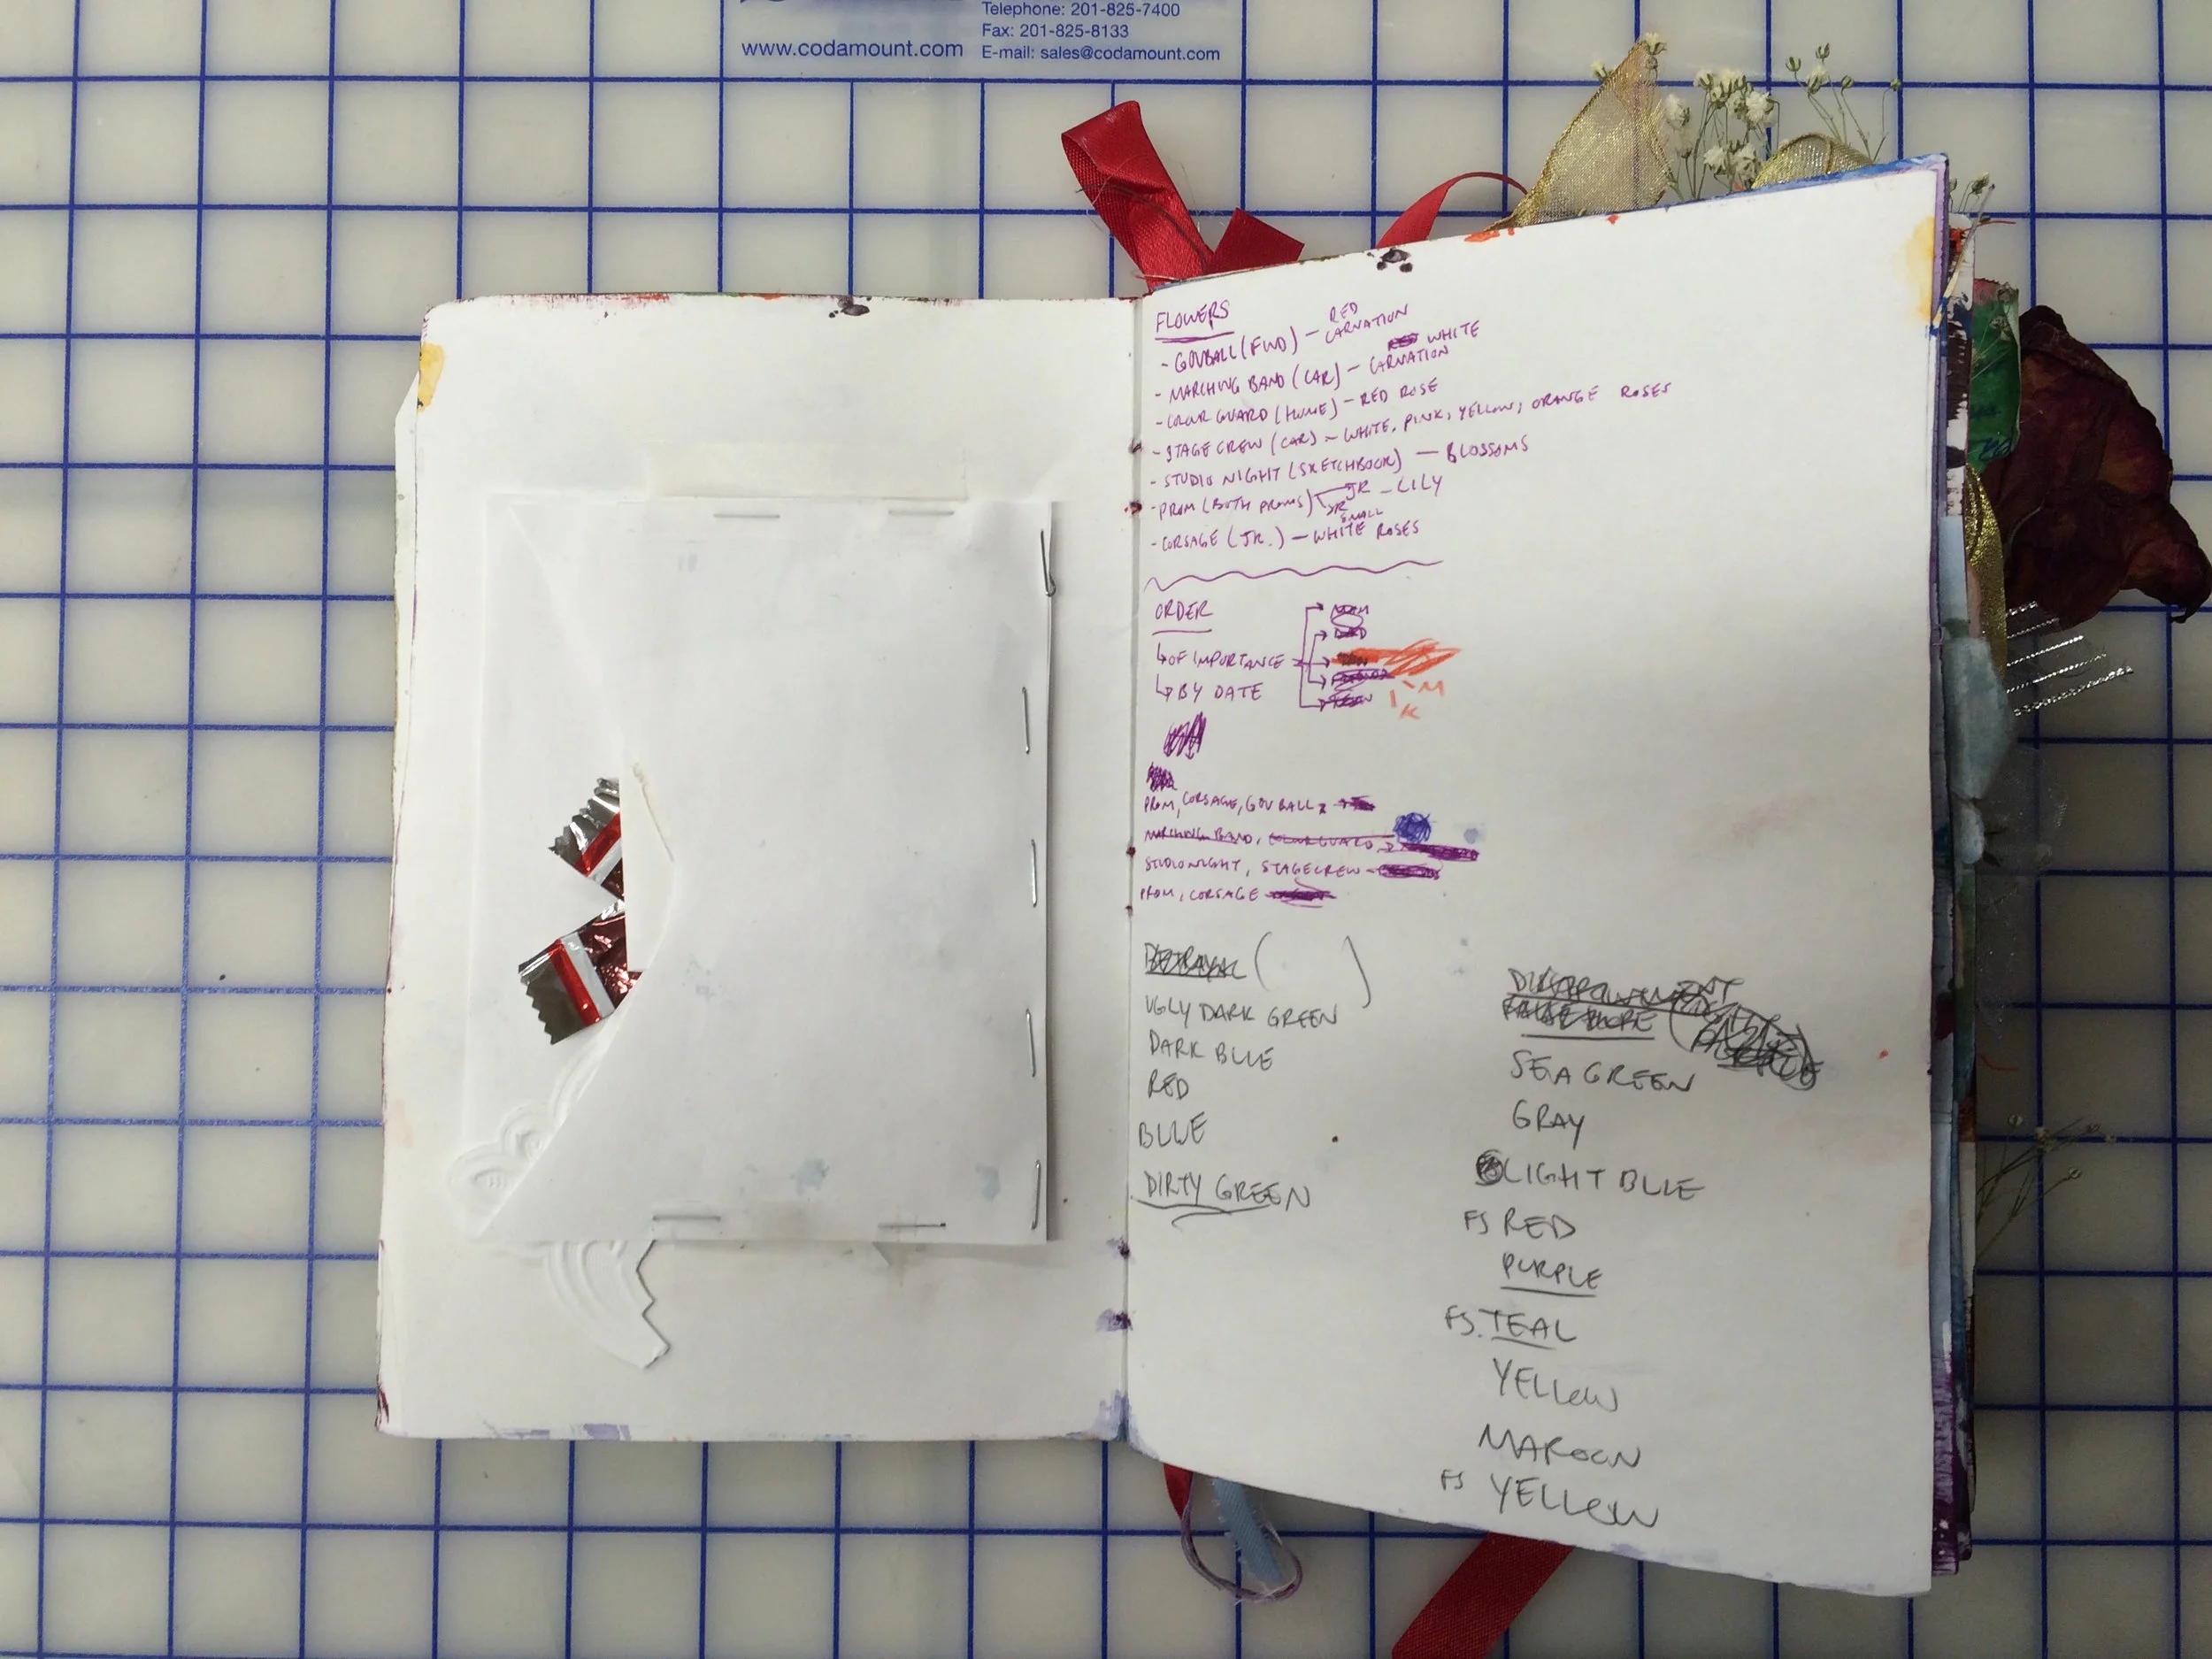 Telephone: 201-825-7400
Fax: 201-825-8133
www.codamount.com
E-mail: sales@codamount.com
FLOWERS
- GOVBALL (FWD) — RED CARNATION
- MARCHING BAND (CAR) — WHITE CARNATION
- COLOR GUARD (HOME) — RED ROSE
- STAGE CREW (CAR) — WHITE, PINK, YELLOW, ORANGE ROSES
- STUDIO NIGHT (SKETCHBOOK) — BLOSSOMS
- PROM (BOTH PROMS) JR — LILY
SR
- CORSAGE (JR.) — SMALL WHITE ROSES
ORDER
↳ OF IMPORTANCE
↳ BY DATE
M
K
PROM, CORSAGE, GOVBALL
MARCHING BAND, COLOR GUARD
STUDIO NIGHT, STAGE CREW
PROM, CORSAGE
BETRAYAL ( )
UGLY DARK GREEN
DARK BLUE
RED
BLUE
DIRTY GREEN
DISAPPOINTMENT
FALSE HOPE
SEA GREEN
GRAY
LIGHT BLUE
FS RED
PURPLE
FS. TEAL
YELLOW
MAROON
FS YELLOW